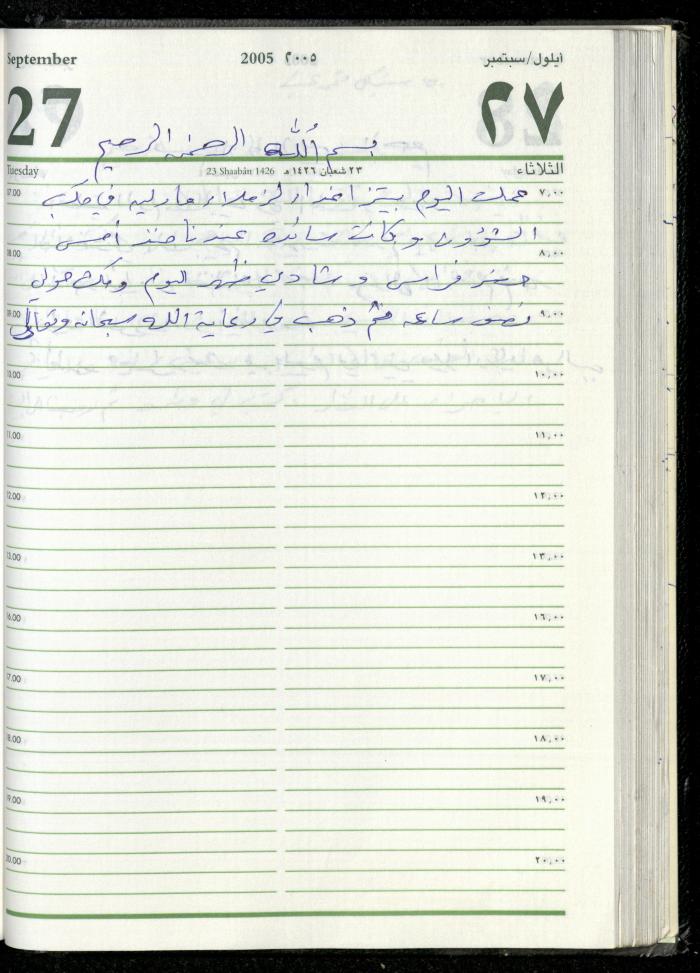 September 2005 ٢٠٠٥ ايلول/سبتمبر
27 ٢٧
بسم الله الرحمن الرحيم
Tuesday 23 Shaabân 1426 ٢٣ شعبان ١٤٢٦ هـ الثلاثاء
07.00 عملت اليوم بيتزا غدا لزملاء مارليه في مكتب ٧,٠٠
الشؤون وكانت سائده عندنا منذ أمس
08.00 ٨,٠٠
حضر فراس وشادي ظهر اليوم ومكث حولي
09.00 نصف ساعه ثم ذهب في رعاية الله سبحانه وتعالى ٩,٠٠
10.00 ١٠,٠٠
11.00 ١١,٠٠
12.00 ١٢,٠٠
13.00 ١٣,٠٠
16.00 ١٦,٠٠
17.00 ١٧,٠٠
18.00 ١٨,٠٠
19.00 ١٩,٠٠
20.00 ٢٠,٠٠